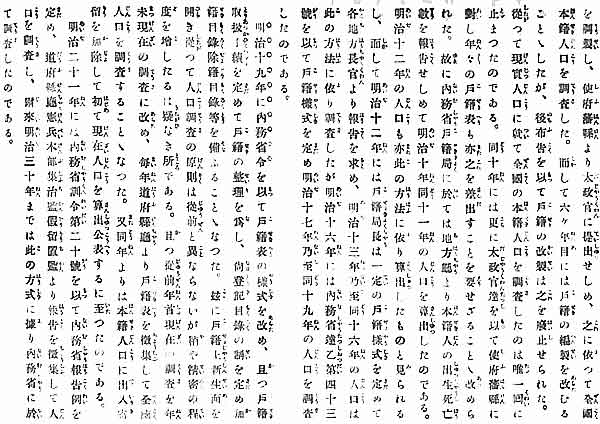 を調製し、使府藩縣より太政官に提出せしめ、之に依つて全國の
本籍人口を調査した。而して六ヶ年目には戸籍の編製を改むる
ことゝしたが、後布告を以て戸籍の改製は之を廢止せられた。
從つて現實人口に就て全國の本籍人口を調査したのは唯一囘に
止まつたのである。同十年には更に太政官達を以て使府藩縣に
對し年々の戸籍表も亦之を差出すことを要せざることゝ改めら
れた。故に内務省戸籍局に於ては地方廳より本籍人の出生死亡
數を報告せしめて明治十年同十一年の人口を算出したのである。
明治十二年の人口も亦此の方法に依り算出したものと見られる
し、而して明治十二年には戸籍局長は一定の戸籍樣式を定めて
各地方長官より報告を求め、明治十三年乃至同十六年の人口は
此の方法に依り調査したが明治十六年には内務省達乙第四十三
號を以て戸籍樣式を定め明治十七年乃至同十九年の人口を調査
したのである。
明治十九年に内務省令を以て戸籍表の樣式を改め、且つ戸籍
取扱手續を定めて戸籍の整理を爲し、尙登記目錄の制を定め加
籍目錄除籍目錄等を備ふることゝなつた。玆に戸籍上新生面を
開き從つて人口調査の原則は從前と異ならないが稍々精密の程
度を增したるは疑なき所である。且つ從前年首現在の調査を年
末現在の調査に改め、每年道府縣廳より戸籍表を徵集して全國
人口を調査することゝなつた。又同年よりは本籍人口に出入寄
留を加除して初て現在人口を算出公表するに至つたのである。
明治二十一年には内務省訓令第二十號を以て内務省報告例を
定め、道府縣廳憲兵本部集治監假留監より報告を徵集して人
口を調査し、爾來明治三十年までは此の方式に據り内務省に於
て調査したのである。